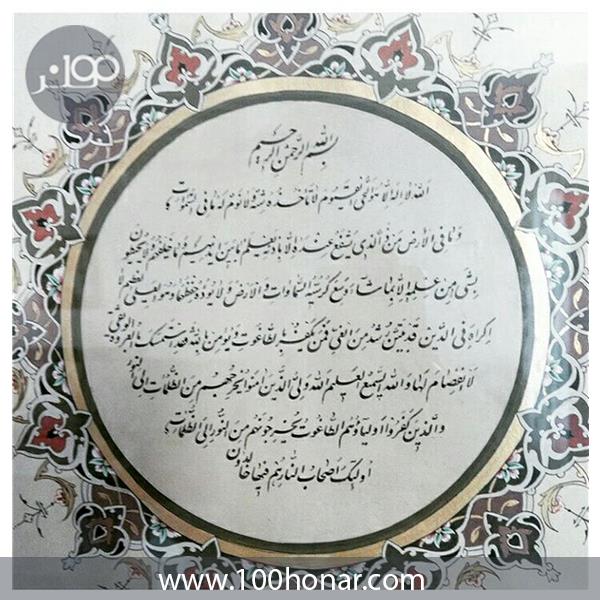 ۱۰۰هنر
بسم الله الرحمن الرحیم
الله لا اله الا هو الحی القیوم لا تاخذه سنة و لا نوم له ما فی السموات
و ما فی الارض من ذا الذی یشفع عنده الا باذنه یعلم ما بین ایدیهم و ما خلفهم و لا یحیطون
بشی من علمه الا بما شاء وسع کرسیه السماوات و الارض و لا یوده حفظهما و هو العلی العظیم لا
اکراه فی الدین قد تبین الرشد من الغی فمن یکفر بالطاغوت و یومن بالله فقد استمسک بالعروة الوثقی
لا انفصام لها و الله السمیع العلیم الله ولی الذین امنوا یخرجهم من الظلمات الی النور
و الذین کفروا اولیاؤهم الطاغوت یخرجونهم من النور الی الظلمات
اولئک اصحاب النار هم فیها خالدون
www.100honar.com